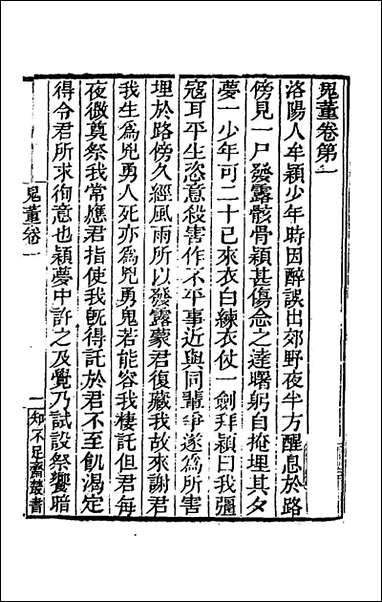 鬼董卷第一
洛陽人牟穎少年時因醉誤出郊野夜半方醒息於路
傍見一尸發露骸骨穎甚傷念之達曙躬自掩埋其夕
夢一少年可二十已來衣白練衣仗一劍拜穎曰我彊
寇耳平生恣意殺害作不平事近與同輩爭遂為所害
埋於路傍久經風雨所以發露蒙君復藏我故來謝君
我生為兇勇人死亦為兇勇鬼若能容我棲託但君每
夜微奠祭我常應君指使我旣得託於君不至飢渴定
得令君所求徇意也穎夢中許之及覺乃試設祭饗暗
鬼董卷一
一
知不足齋叢書